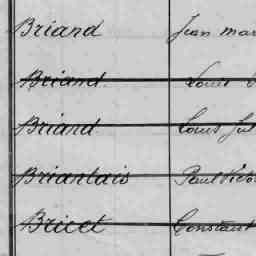 Briand Jean mar
Briand Louis
Briand Louis Jul
Briantais Paul Victo
Bricet Constant